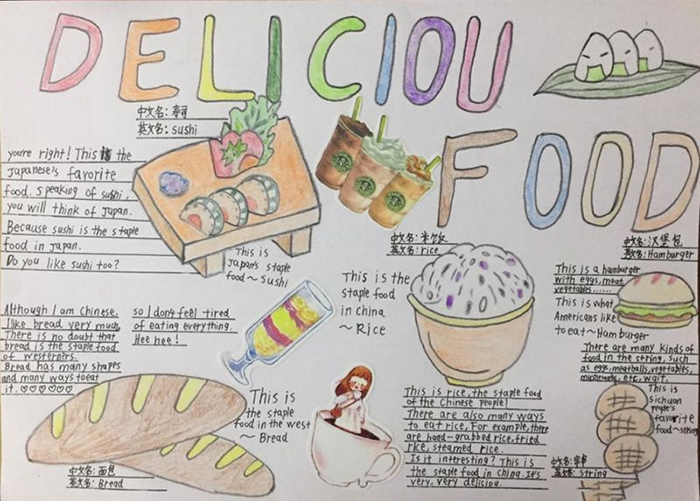 DELICIOU
FOOD
中文名: 寿司
英文名: sushi
youre right! This the
Japaneseis favorite
food. speaking of sushi,
you will think of Japan.
Because sushi is the staple
food in Japan.
Do you like sushi too?
This is
Japan's staple
food~sushi
中文名: 米饭
英文名: rice
中文名: 汉堡包
英文名: Hamburger
This is the
staple food
in china
~ Rice
This is a hamburger
with eggs, meat,
vegetables......
This is what
Americans like
to eat~Hamburger
There are many kinds of
food in the string, such
as egg, meatballs, vegetables,
mushrooms, etc. wait.
Although I am Chinese,
I like bread very much,
There is no doubt that
bread is the staple food
of westerners.
Bread has many shapes
and many ways to eat
it. ♡♡♡♡♡♡
so I don't feel tired
of eating everything.
Hee hee!
This is
the staple
food in the west
~ Bread
中文名: 面包
英文名: Bread
This is rice, the staple food
of the Chinese people!
There are also many ways
to eat rice. For example, there
are hand-grabbed rice, fried
rice, steamed rice.
Is it interesting? This is
the staple food in china. It's
very, very deliciou.
This is
sichuan
people's
favorite
food~string
英文名: string